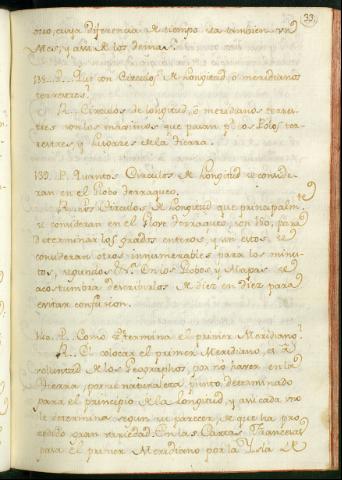 33
otro, cuya diferencia de tiempo sea tambien un
Mes, y assi de los demas.
138. P. Que son Circulos de Longitud, ó meridianos
terrestres?
R. Circulos de longitud, ó meridianos terres-
tres son los maximos que pasan por los Polos ter-
restres, y lugares de la Tierra.
139. P. Quantos Circulos de Longitud se conside-
ran en el Globo terraqueo.
R. Los Circulos de Longitud que principalmte
se consideran en el Globo terraqueo, son 180, para
determinar los grados enteros, y sin estos, se
consideran otros innumerables para los minu-
tos, segundos En los Globos, y Mapas se
acostumbra descrivirlos de diez en diez para
evitar confusion.
140. P. Como se termina el primer Meridiano?
R. El colocar el primer Meridiano, es à
voluntad de los Geographos, por no haver en la
Tierra, por naturaleza punto determinado
para el principio de la longitud, y assi cada uno
le determina segun su parecer, de que ha pro-
cedido gran variedad. En las Cartas Francesas
pasa el primer Meridiano por la Ysla de